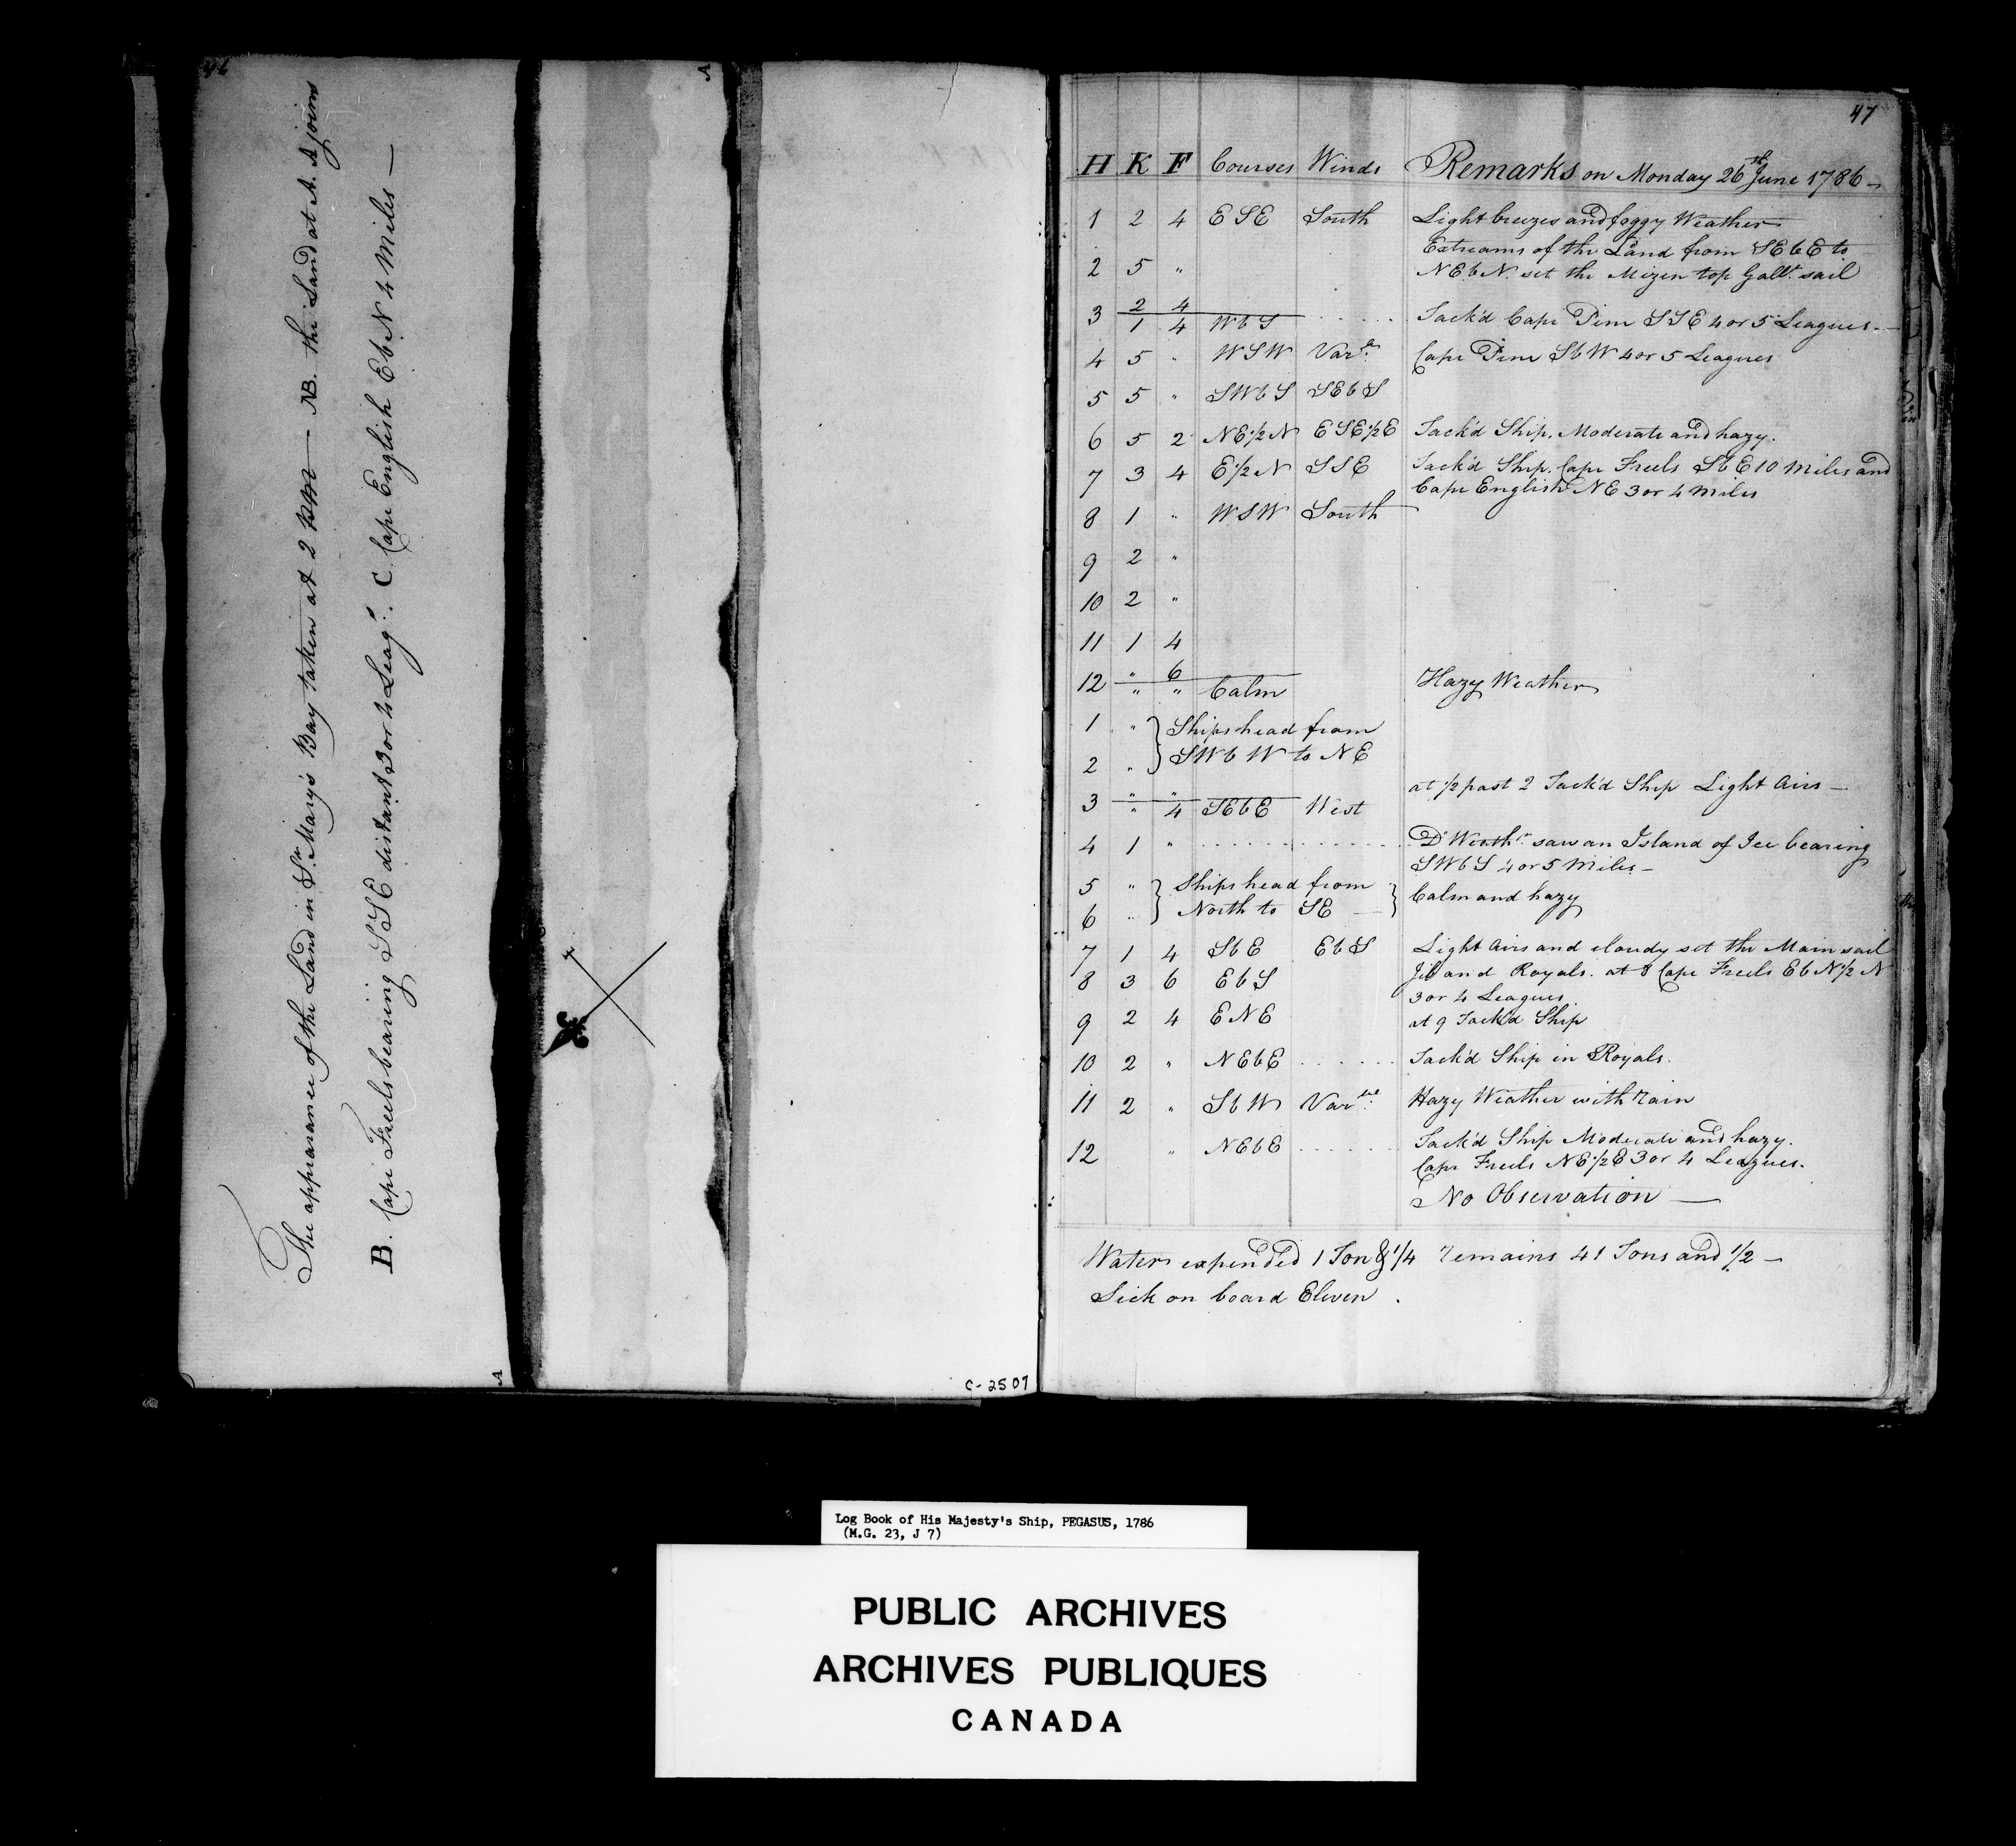 46
The appearance of the Land in St. Mary's Bay taken at 2 PM — NB. the Land at A. A joins
B. Cape Freels bearing SSE distant 3 or 4 Leags. C. Cape English EbN 4 Miles —
A
A
C-2507
47
H K F Courses Winds Remarks on Monday 26th June 1786 —
1 2 4 ESE South Light breezes and foggy Weather
Extreams of the Land from SEbE to
2 5 " NEbN. set the Mizen top Gallt. sail
3 2 4
1 4 WbS Tack'd Cape Pine SSE 4 or 5 Leagues. —
4 5 " WSW Varle. Cape Pine SbW 4 or 5 Leagues
5 5 " SWbS SEbS
6 5 2 NE1/2N ESE1/2E Tack'd Ship. Moderate and hazy.
7 3 4 E1/2N SSE Tack'd Ship. Cape Freels SbE 10 Miles and
Cape English NE 3 or 4 Miles
8 1 " WSW South
9 2 "
10 2 "
11 1 4
12 " 6
" " Calm Hazy Weather
1 " Ships head from
2 " SWbW to NE
3 " " at 1/2 past 2 Tack'd Ship Light Airs —
" 4 SEbE West
4 1 " Do Weathr. saw an Island of Ice bearing
SWbS 4 or 5 Miles —
5 " Ships head from Calm and hazy
6 " North to SE —
7 1 4 SbE EbS Light Airs and cloudy set the Main sail
8 3 6 EbS Jib and Royals. at 8 Cape Freels EbN1/2N
3 or 4 Leagues.
9 2 4 ENE at 9 Tack'd Ship
10 2 " NEbE Tack'd Ship in Royals.
11 2 " SbW Varble. Hazy Weather with rain
12 " NEbE Tack'd Ship Moderate and hazy.
Cape Freels NE1/2E 3 or 4 Leagues.
No Observation —
Water expended 1 Ton & 1/4 remains 41 Tons and 1/2 —
Sick on board Eleven .
Log Book of His Majesty's Ship, PEGASUS, 1786
(M.G. 23, J 7)
PUBLIC ARCHIVES
ARCHIVES PUBLIQUES
CANADA